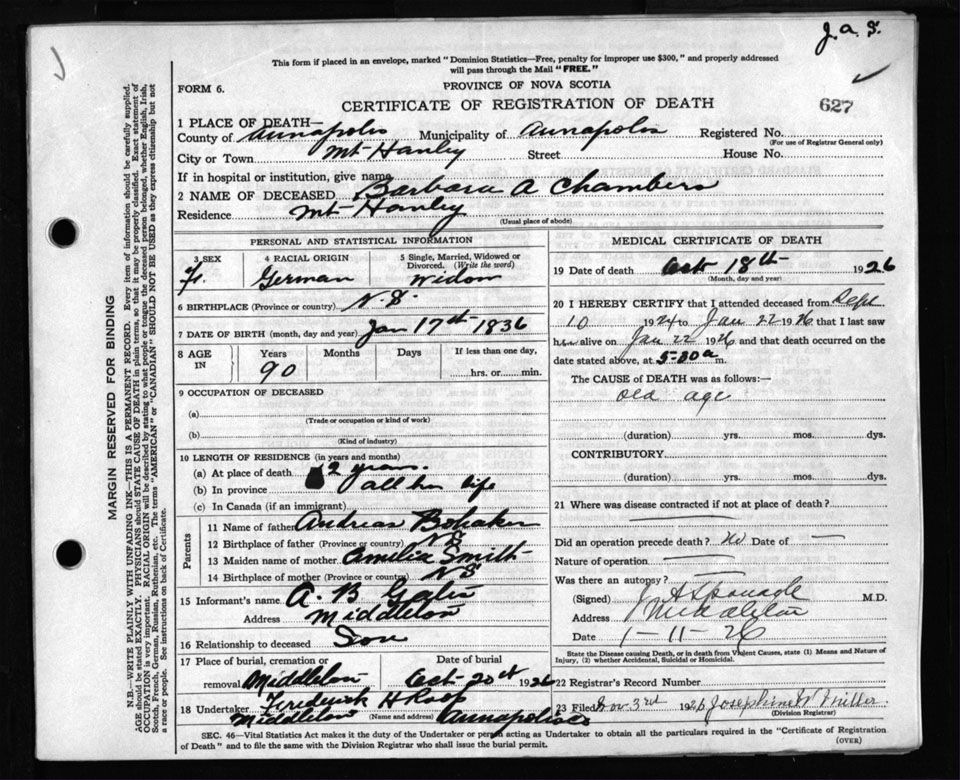 J. A. S.
This form if placed in an envelope, marked "Dominion Statistics—Free, penalty for improper use $300," and properly addressed
will pass through the Mail "FREE."
FORM 6.
PROVINCE OF NOVA SCOTIA
CERTIFICATE OF REGISTRATION OF DEATH
627
1 PLACE OF DEATH—
County of Annapolis Municipality of Annapolis Registered No.
(For use of Registrar General only)
City or Town Mt Hanley Street House No.
If in hospital or institution, give name
2 NAME OF DECEASED Barbara A Chambers
Residence Mt Hanley
(Usual place of abode)
PERSONAL AND STATISTICAL INFORMATION
3 SEX F.
4 RACIAL ORIGIN German
5 Single, Married, Widowed or Divorced. (Write the word) Widow
6 BIRTHPLACE (Province or country) N.S.
7 DATE OF BIRTH (month, day and year) Jan 17th 1836
8 AGE IN Years 90 Months Days If less than one day, hrs. or min.
9 OCCUPATION OF DECEASED
(a)
(Trade or occupation or kind of work)
(b)
(Kind of industry)
10 LENGTH OF RESIDENCE (in years and months)
(a) At place of death 2 years.
(b) In province all her life
(c) In Canada (if an immigrant)
Parents
11 Name of father Andreas Bohaker
12 Birthplace of father (Province or country) N S
13 Maiden name of mother Amelia Smith
14 Birthplace of mother (Province or country) N S
15 Informant's name A. B
Address Middleton
16 Relationship to deceased Son
17 Place of burial, cremation or removal Middleton
Date of burial Oct 20th 1926
18 Undertaker Frederick H Roop
Middleton (Name and address) Annapolis Co
MEDICAL CERTIFICATE OF DEATH
19 Date of death Oct 18th 1926
(Month, day and year)
20 I HEREBY CERTIFY that I attended deceased from Sept
10 1924 to Jan 22 1926 that I last saw
her alive on Jan 22 1926 and that death occurred on the
date stated above, at 5-30 a m.
The CAUSE of DEATH was as follows:—
old age
(duration) yrs. mos. dys.
CONTRIBUTORY
(duration) yrs. mos. dys.
21 Where was disease contracted if not at place of death?
Did an operation precede death? no Date of —
Nature of operation
Was there an autopsy?
(Signed) M.D.
Address Middleton
Date 1-11-26
State the Disease causing Death, or in death from Violent Causes, state (1) Means and Nature of
Injury, (2) whether Accidental, Suicidal or Homicidal.
22 Registrar's Record Number
23 Filed Nov 3rd 1926 Josephine W Miller
(Division Registrar)
SEC. 46—Vital Statistics Act makes it the duty of the Undertaker or person acting as Undertaker to obtain all the particulars required in the "Certificate of Registration
of Death" and to file the same with the Division Registrar who shall issue the burial permit.
(OVER)
MARGIN RESERVED FOR BINDING
N.B.—WRITE PLAINLY WITH UNFADING INK—THIS IS A PERMANENT RECORD. Every item of information should be carefully supplied.
AGE should be stated EXACTLY. PHYSICIANS should STATE CAUSE OF DEATH in plain terms, so that it may be properly classified. Exact statement of
OCCUPATION is very important. RACIAL ORIGIN will be described by stating to what people or tongue the deceased person belonged, whether English, Irish,
Scotch, French, German, Russian, Ruthenian, etc. The terms "AMERICAN" or "CANADIAN" SHOULD NOT BE USED as they express citizenship but not
a race or people. See instructions on back of Certificate.